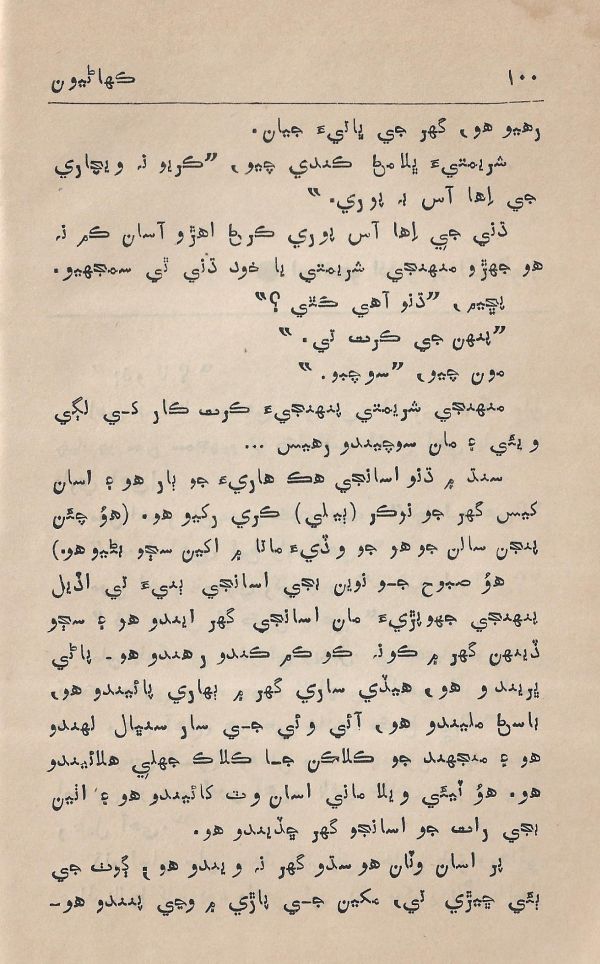 ١٠٠ ڪهاڻيون
رهيو هو، گهر جي ڀاتيءَ جيان.
شريمتيءَ پلامڻ ڪندي چيو، ”ڪريو نہ ويچاري
جي اِها آس بہ پوري.“
ڌني جي اِها آس پوري ڪرڻ اهڙو آسان ڪم نہ
هو جهڙو منهنجي شريمتي يا خود ڌني ٿي سمجهيو.
پڇيم، ”ڌنو آهي ڪٿي ؟“
”پنهن جي ڪرت تي.“
مون چيو، ”سوچيو.“
منهنجي شريمتي پنهنجيءَ ڪرت ڪار ڪي لڳي
ويئي ۽ مان سوچيندو رهيس ...
سنڌ ۾ ڌنو اسانجي هڪ هاريءَ جو ٻار هو ۽ اسان
کيس گهر جو نوڪر (ٻيلي) ڪري رکيو هو. (هوُ چئن
پنجن سالن جو هو جو وڏيءَ ماتا ۾ اکين سڄو بڻيو هو.)
هوُ صبوح جو نوين بجي اسانجي ٻنيءَ تي اڏيل
پنهنجي جهوپڙيءَ مان اسانجي گهر ايندو هو ۽ سڄو
ڏينهن گهر ۾ ڪونہ ڪو ڪم ڪندو رهندو هو- پاڻي
ڀريندو هو، هيڏي ساري گهر ۾ ٻهاري پائيندو هو،
باسڻ مليندو هو، آئي وئي جي سار سنڀال لهندو
هو ۽ منجهند جو ڪلاڪن جا ڪلاڪ جهلي هلائيندو
هو. هوُ ٽيئي ويلا ماني اسان وٽ کائيندو هو ۽ اٺين
بجي رات جو اسانجو گهر ڇڏيندو هو.
پر اسان وٽان هو سڌو گهر نہ ويندو هو؛ ڳوٺ جي
ٻئي ڇيڙي تي، مکين جي پاڙي ۾ وڃي پنندو هو-